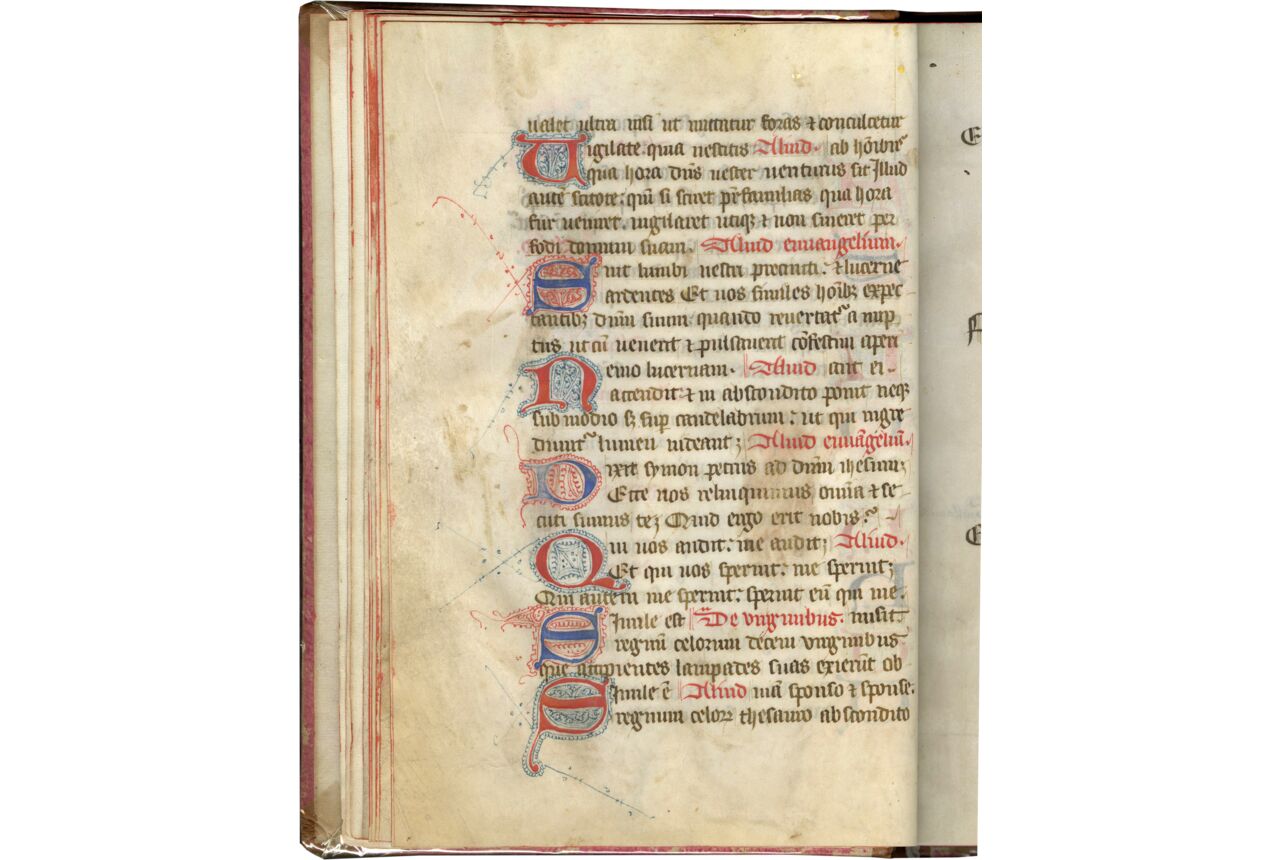 ualet ultra nisi ut mittatur foras ⁊ conculcetur
Uigilate quia nescitis Aliud. ab hoı̅bꝰ
qua hora dn̅s uester uenturus sit Illud
aute scitote: qm̅ si sciret pr̅familias qua hora
fur ueniret. uigilaret utiqꝫ ⁊ non sineret per
fodi domum suam. Aliud euuangelium.
Sint lumbi uestri precincti: ⁊ lucerne
ardentes Et uos similes hoı̅bꝫ expec
tantibꝫ dn̅m suum: quando reuertatᷣ a nup
tiis ut cu̅ uenerit ⁊ pulsauerit co̅festim aperi
Nemo lucernam. Aliud ant ei.
accendit ⁊ in abscondito ponit neqꝫ
sub modio sꝫ sup̲ candelabrum: ut qui ingre
diuntᷣ lumen uideant; Aliud euua̅geliu̅.
Dixit symon petrus ad dn̅m ihesum;
Ecce nos relinquimus omı̅a ⁊ se
cuti sumus teꝫ Quid ergo erit nobis?
Qui uos audit: me audit; Aliud.
Et qui uos spernit: me spernit;
Qui autem me spernit: spernit eu̅ qui me.
Simile est De uirginibus. misit.
regnu̅ celorum decem uirginibus
que accipientes lampades suas exieru̅t ob
Simile e̅ Aliud uia̅ sponso ⁊ sponse.
regnum celoꝝ thesauro abscondito